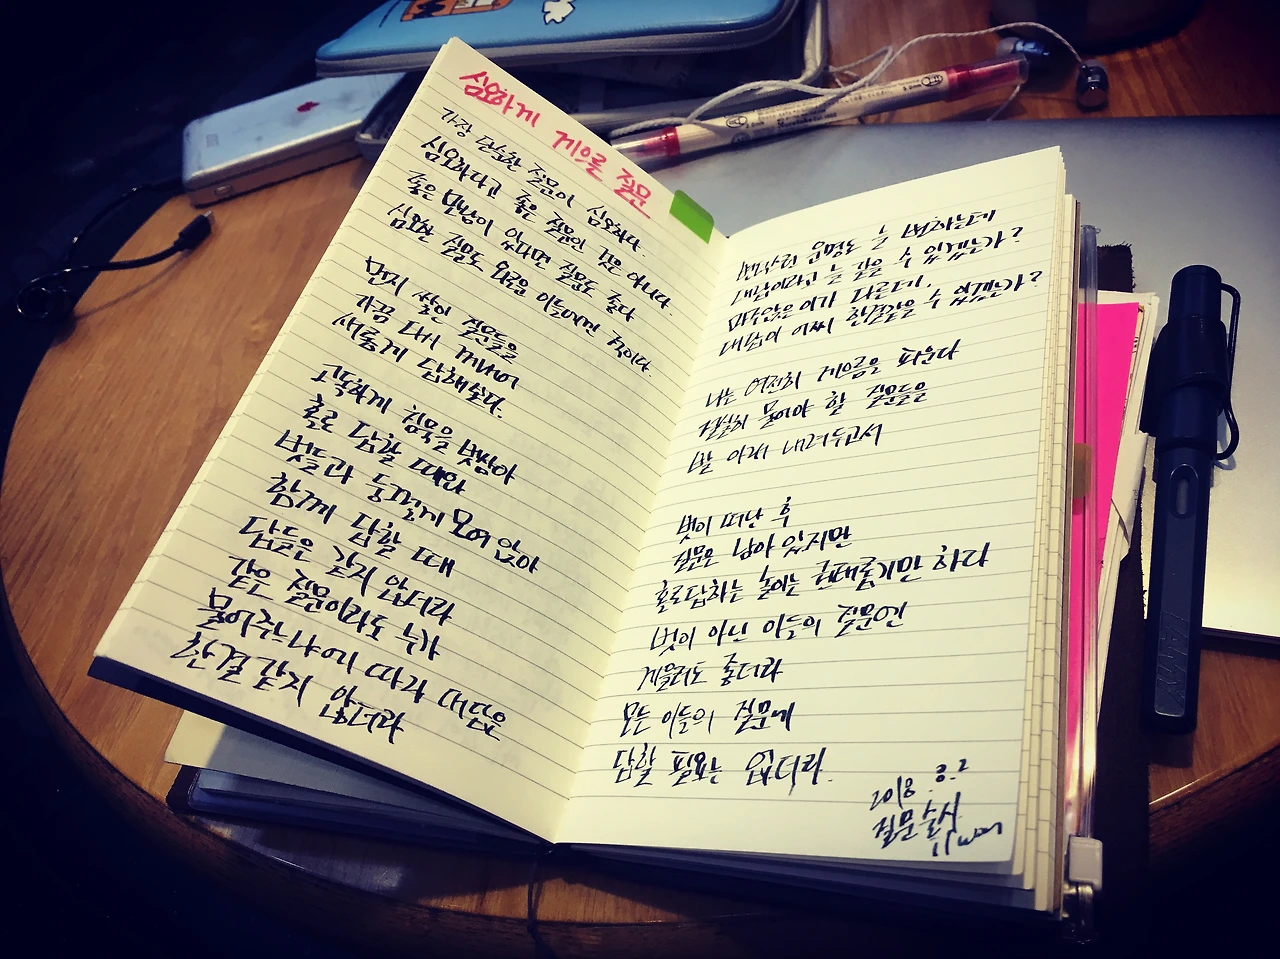 심오하게 게으른 질문
가장 단순한 질문이 심오하다.
심오하다고 좋은 질문인 것은 아니다.
좋은 모양이 있다면 질문도 좋다
심오한 질문도 외로운 이들에겐 독이다.
먼지 쌓인 질문들을
가끔 다시 꺼내어
새롭게 답해보다.
고독하게 침묵을 벗삼아
홀로 답할 때와
벗들과 둥그렇게 모여 앉아
함께 답할 때
답들은 같지 않더라
같은 질문이라도 누가
물어주느냐에 따라 대답은
한결같지 않더라
운명도 늘 변하는데
대답이라고 늘 같을 수 있겠는가?
마주앉은 이가 다른데,
대답이 어찌 한결같을 수 있겠는가?
나는 여전히 게으름을 피운다
절실히 물어야 할 질문들을
발 아래 내려두고서
벗이 떠난 후
질문은 남아 있지만
홀로 답하는 놀이는 권태롭기만 하다
벗이 아닌 이들의 질문엔
게을러도 좋더라
모든 이들의 질문에
답할 필요는 없더라.
2018.8.2
질문술사
ilwon